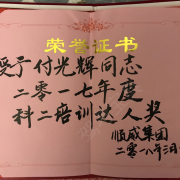 荣誉证书
授予付光辉同志
二零一七年度
科二培训达人奖
顺威集团
二零一八年三月